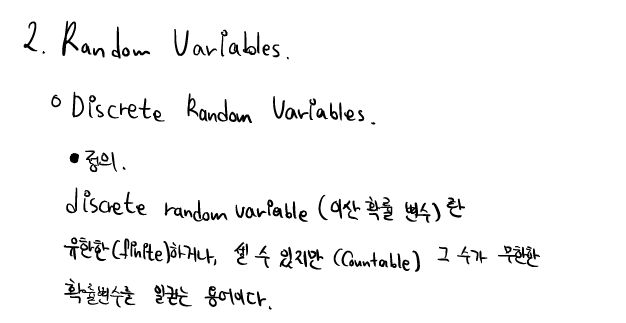 2. Random Variables.
○ Discrete Random Variables.
● 정의.
discrete random variable (이산 확률 변수)란
유한한(finite)하거나, 셀 수 있지만 (Countable) 그 수가 무한한
확률변수를 일컫는 용어이다.